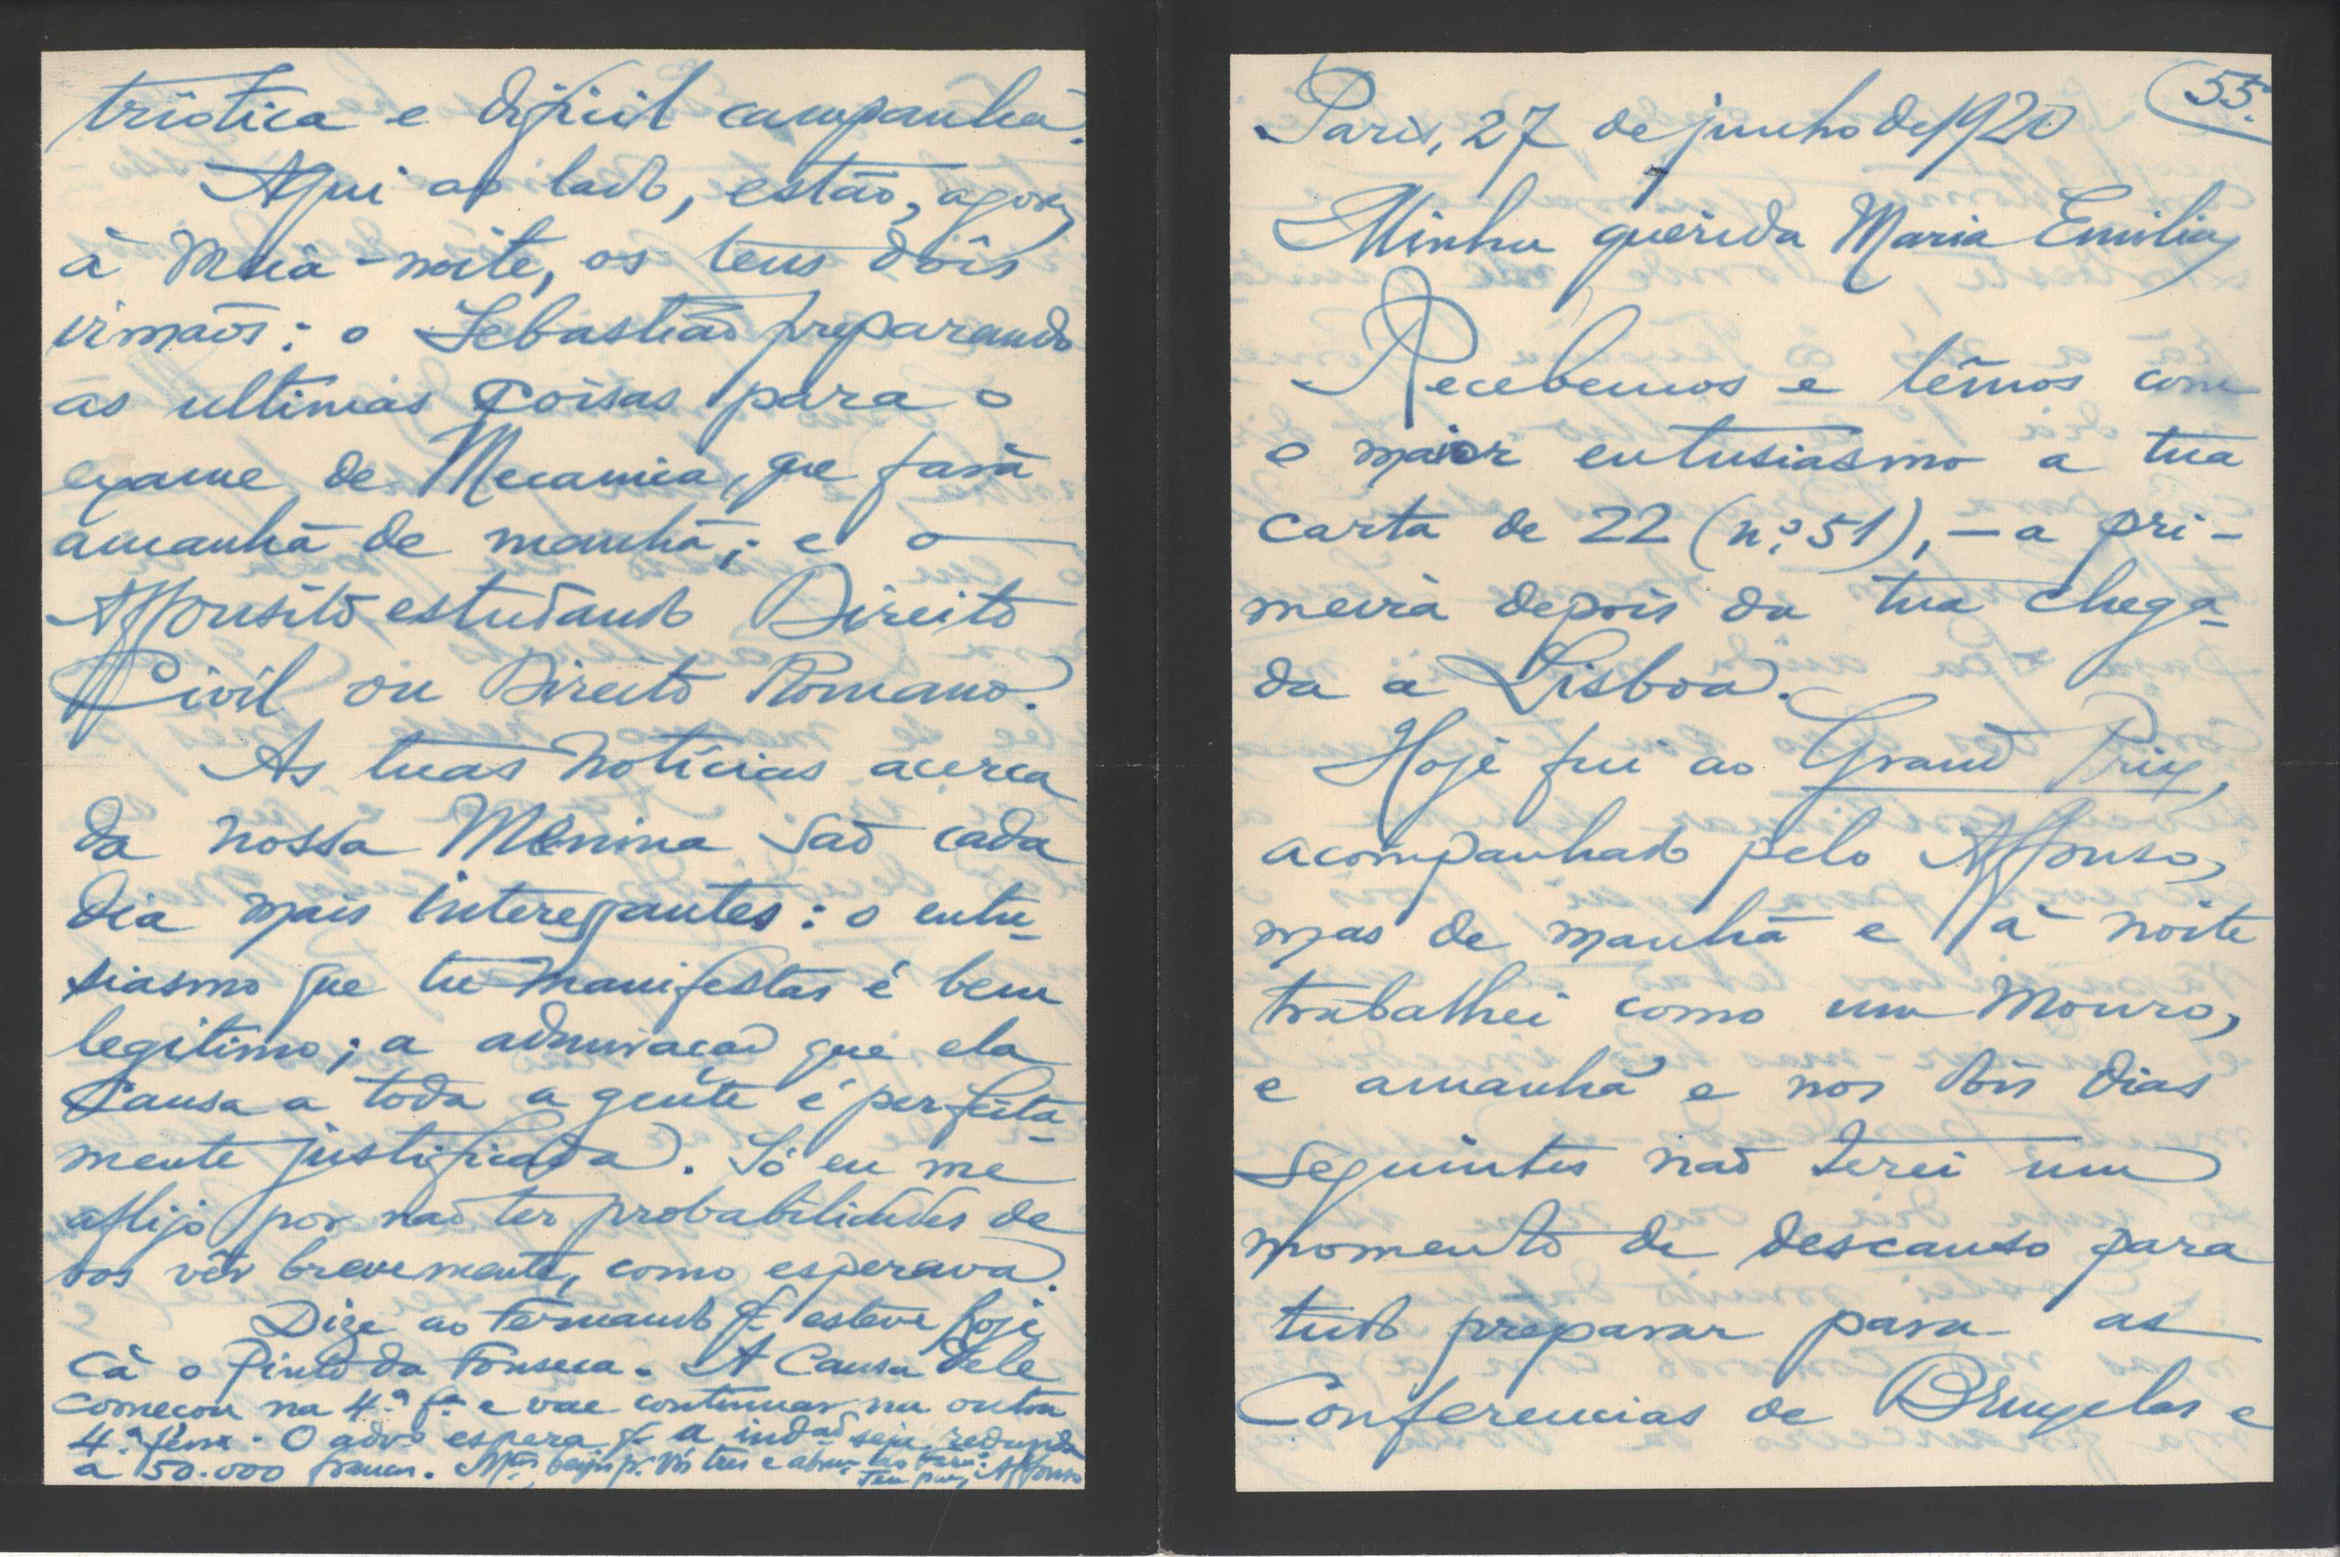 55.
Paris, 27 de junho de 1920
Minha querida Maria Emilia,
Recebemos e lêmos com
o maior entusiasmo a tua
carta de 22 (nº 51), — a pri-
meira depois da tua chega-
da a Lisboa.
Hoje fui ao Grand Prix,
acompanhado pelo Affonso,
mas de manhã e à noite
trabalhei como um Mouro,
e amanhã e nos dois dias
seguintes não terei um
momento de descanso para
tudo preparar para as
Conferencias de Bruxelas e
triotica e dificil campanha.
Aqui ao lado, estão, agora,
à meia-noite, os teus dois
irmãos: o Sebastião preparando
as ultimas coisas para o
exame de Mecanica, que fará
amanhã de manhã; e o
Affonsito estudando Direito
Civil ou Direito Romano.
As tuas notícias acerca
da nossa Menina são cada
dia mais interessantes: o entu-
siasmo que tu manifestas é bem
legitimo; a admiração que ela
causa a toda a gente é perfeita-
mente justificada. Só eu me
aflijo por não ter probabilidades de
vos vêr brevemente, como esperava.
Dize ao Fernando q. esteve hoje
cá o Pinto da Fonseca. A Causa dele
começou na 4.ª fª e vae continuar na outra
4.ª feira. O advº espera q. a ind.ão seja reduzida
a 50.000 francos. beijos p.ª vós tres e
Teu pae, Affonso